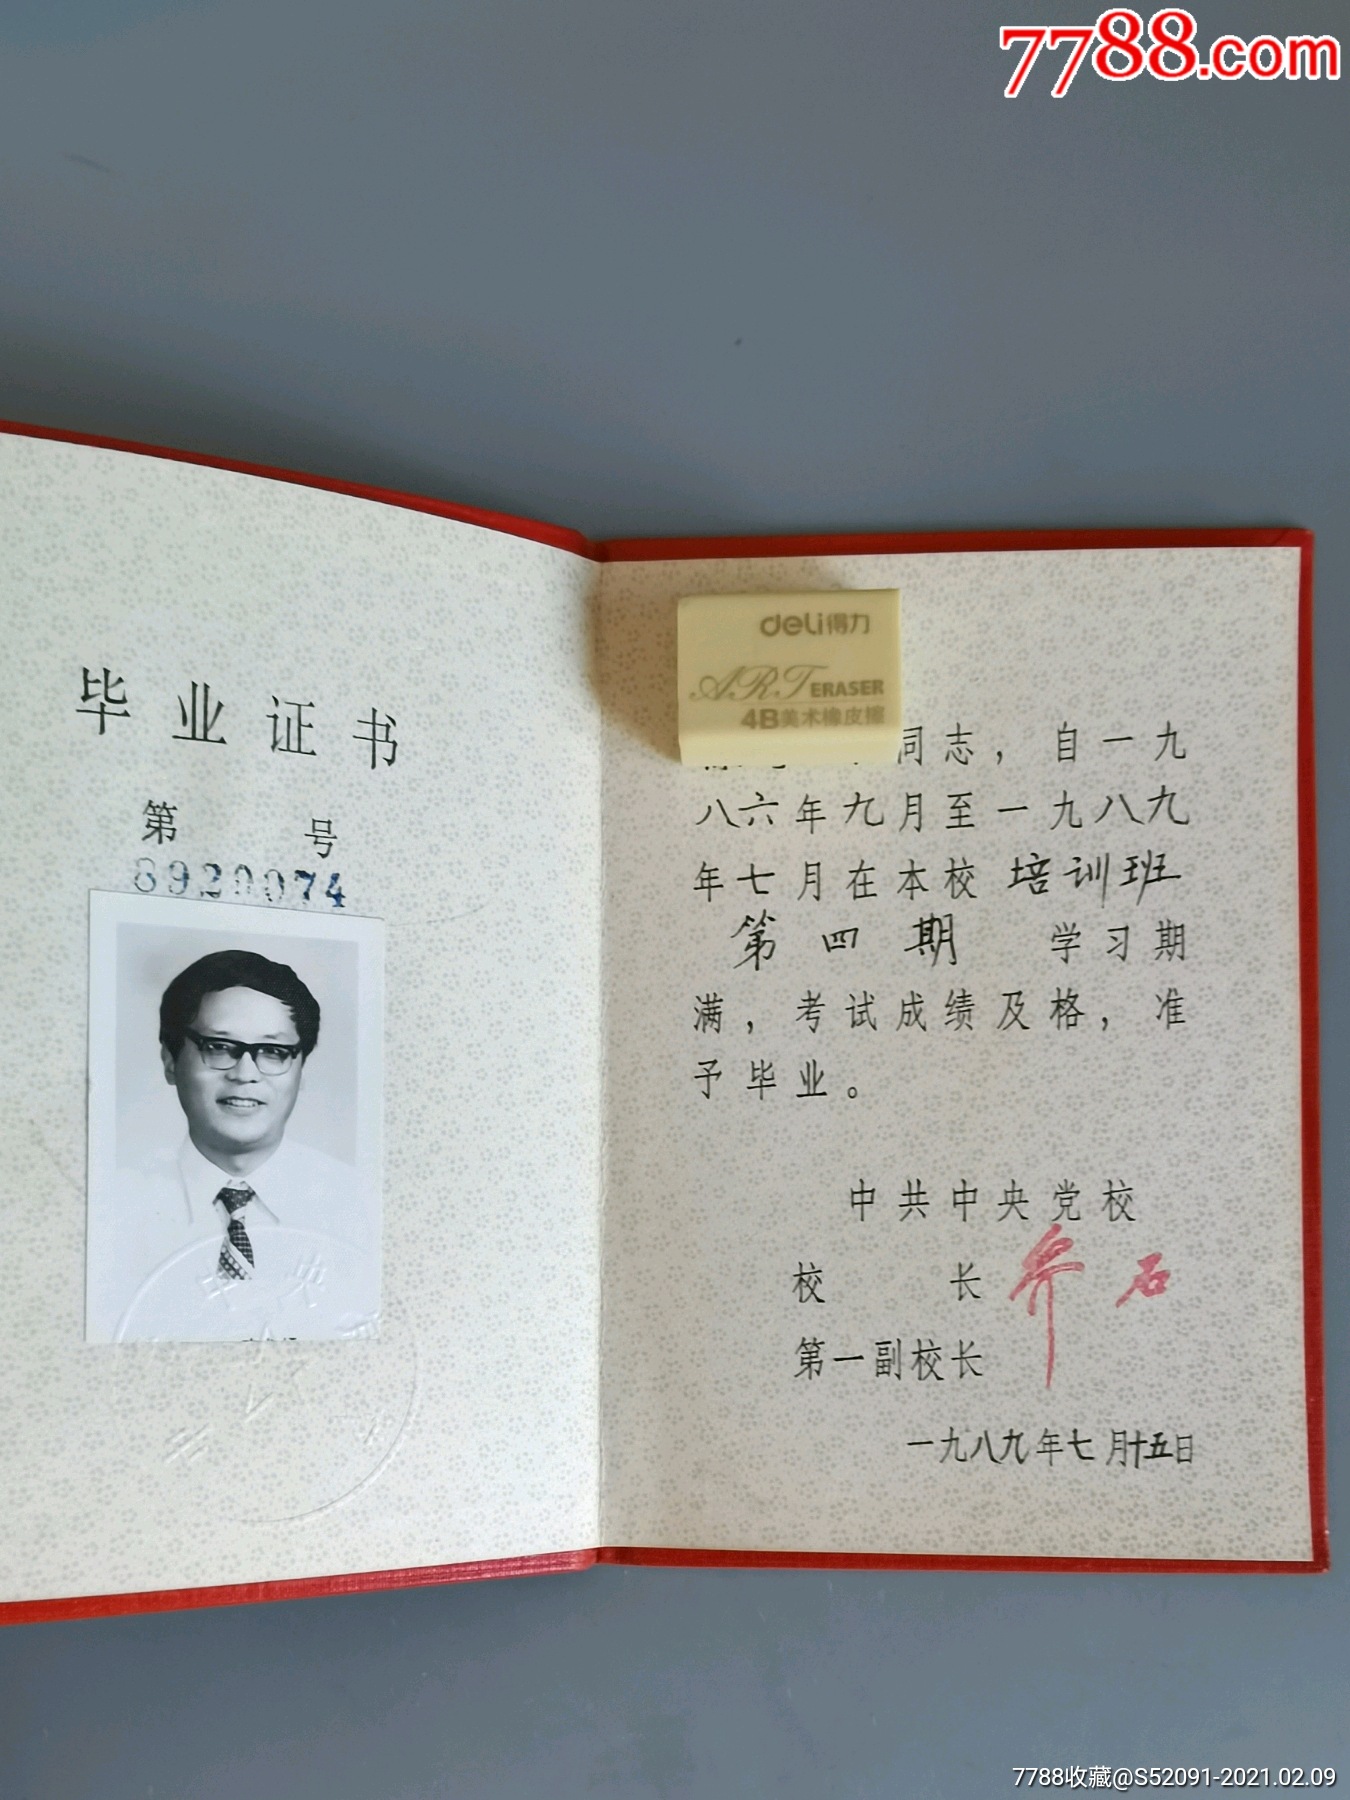 7788.com
毕业证书
第 号
8920074
deli得力
ART ERASER
4B美术橡皮擦
同志，自一九
八六年九月至一九八九
年七月在本校 培训班
第四期 学习期
满，考试成绩及格，准
予毕业。
中共中央党校
校 长 乔石
第一副校长
一九八九年七月十五日
7788收藏@S52091-2021.02.09